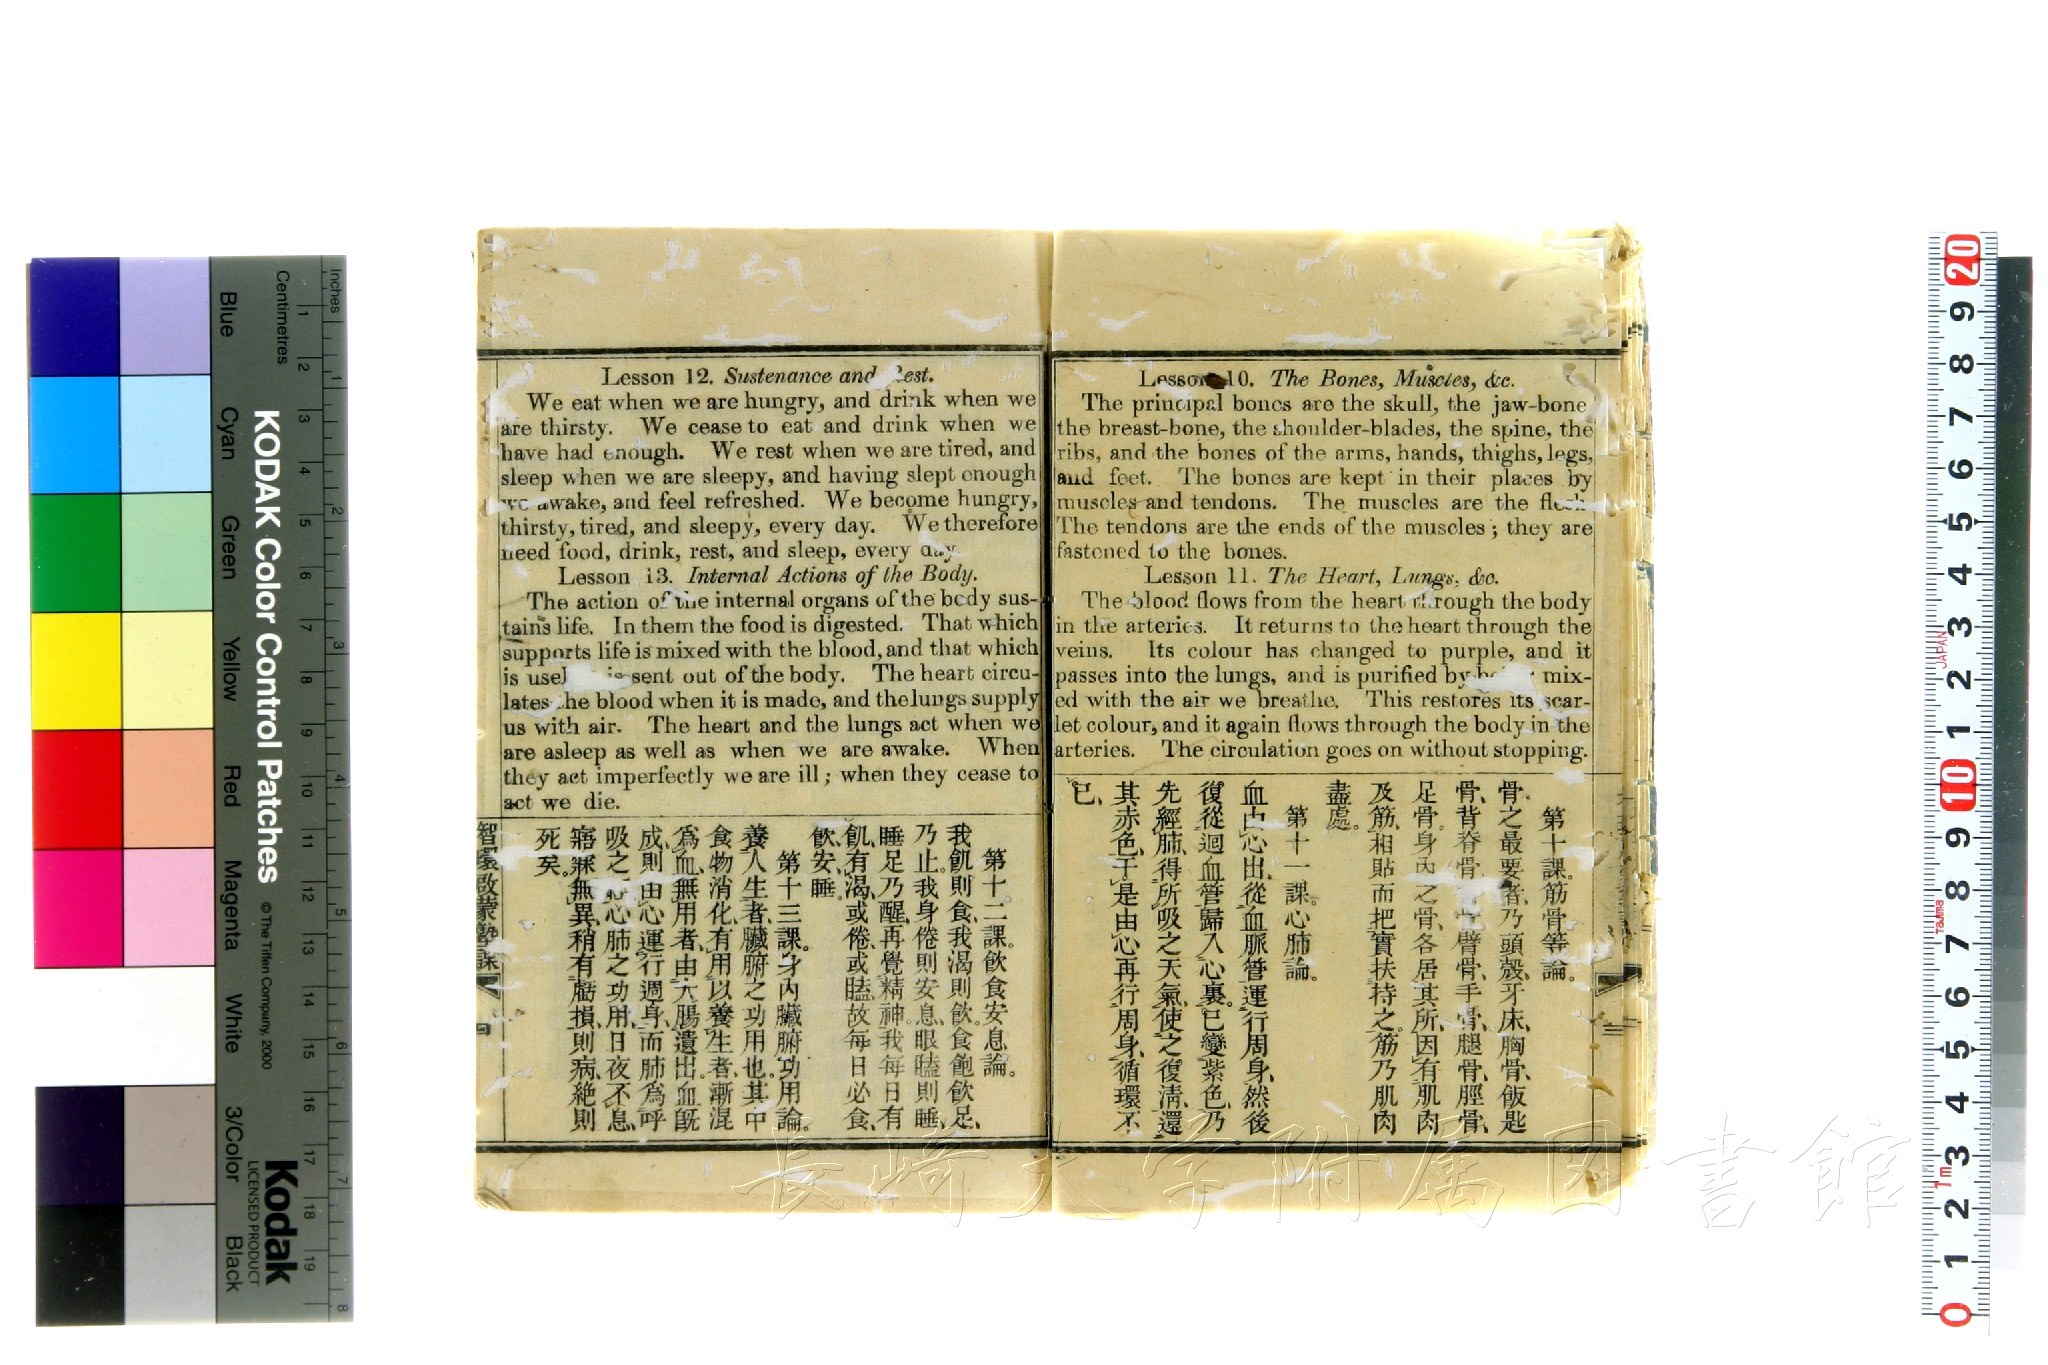 Lesson 10. The Bones, Muscles, &c.
The principal bones are the skull, the jaw-bone
the breast-bone, the shoulder-blades, the spine, the
ribs, and the bones of the arms, hands, thighs, legs,
and feet. The bones are kept in their places by
muscles and tendons. The muscles are the flesh
The tendons are the ends of the muscles; they are
fastened to the bones.
Lesson 11. The Heart, Lungs, &c.
The blood flows from the heart through the body
in the arteries. It returns to the heart through the
veins. Its colour has changed to purple, and it
passes into the lungs, and is purified by mix-
ed with the air we breathe. This restores its scar-
let colour, and it again flows through the body in the
arteries. The circulation goes on without stopping.
第十課。筋骨等論。
骨之最要者、乃頭殼、牙床、胸骨、飯匙
骨、背脊骨、臂骨、手骨、腿骨、脛骨、
足骨。身內之骨、各居其所、因有肌肉
及筋、相貼而把實扶持之。筋乃肌肉
盡處。
第十一課。心肺論。
血由心出、從血脈管運行周身、然後
復從迴血管歸入心裏。已變紫色、乃
先經肺、得所吸之天氣、使之復淸、還
其赤色、于是由心再行周身、循環不
已、
Lesson 12. Sustenance and Rest.
We eat when we are hungry, and drink when we
are thirsty. We cease to eat and drink when we
have had enough. We rest when we are tired, and
sleep when we are sleepy, and having slept enough
we awake, and feel refreshed. We become hungry,
thirsty, tired, and sleepy, every day. We therefore
need food, drink, rest, and sleep, every day.
Lesson 13. Internal Actions of the Body.
The action of the internal organs of the body sus-
tains life. In them the food is digested. That which
supports life is mixed with the blood, and that which
is sent out of the body. The heart circu-
lates the blood when it is made, and the lungs supply
us with air. The heart and the lungs act when we
are asleep as well as when we are awake. When
they act imperfectly we are ill; when they cease to
act we die.
第十二課。飲食安息論。
我飢則食、我渴則飲。食飽飲足、
乃止。我身倦則安息、眼瞌則睡、
睡足乃醒、再覺精神。我每日有
飢、有渴、或倦、或瞌、故每日必食、
飲、安、睡。
第十三課。身內臟腑功用論。
養人生者、臟腑之功用也。其中
食物消化、有用以養生者、漸混
爲血、無用者、由大腸遺出。血旣
成、則由心運行週身、而肺爲呼
吸之、心肺之功用、日夜不息、
寤寐無異、稍有虧損、則病、絕則
死矣。
智環啟蒙塾課
四
長崎大学附属図書館
KODAK Color Control Patches
© The Tiffen Company, 2000
Kodak
LICENSED PRODUCT
Inches
Centimetres
Blue
Cyan
Green
Yellow
Red
Magenta
White
3/Color
Black
1 2 3 4 5 6 7 8 9 10 11 12 13 14 15 16 17 18 19
1 2 3 4 5 6 7 8
20 9 8 7 6 5 4 3 2 1 10 9 8 7 6 5 4 3 2 1 0
JAPAN
TAJIMA
1m